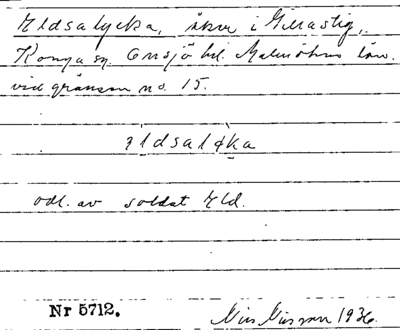 Eldsalycka, åker i Gillastig,
Konga sn. Onsjö hd. Malmöhus län.
vid gränsen no. 15.
ældsalɸka
odl. av soldat Eld.
Nr 5712.
Nils Nilsson 1936